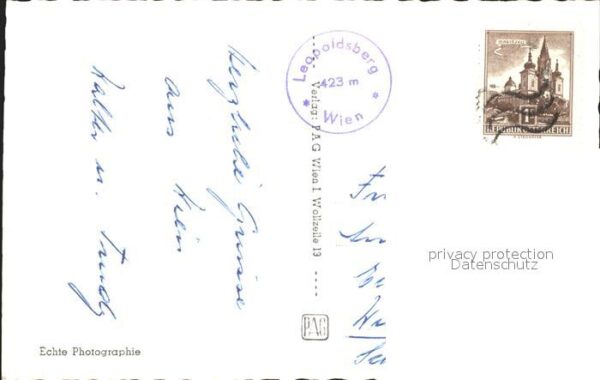 Herzliche Grüsse
aus Wien
Walter u. Trudy
Leopoldsberg
423 m
Wien
Verlag: PAG Wien I. Wollzeile 13
PAG
Mariazell
REPUBLIK ÖSTERREICH
privacy protection
Datenschutz
Echte Photographie